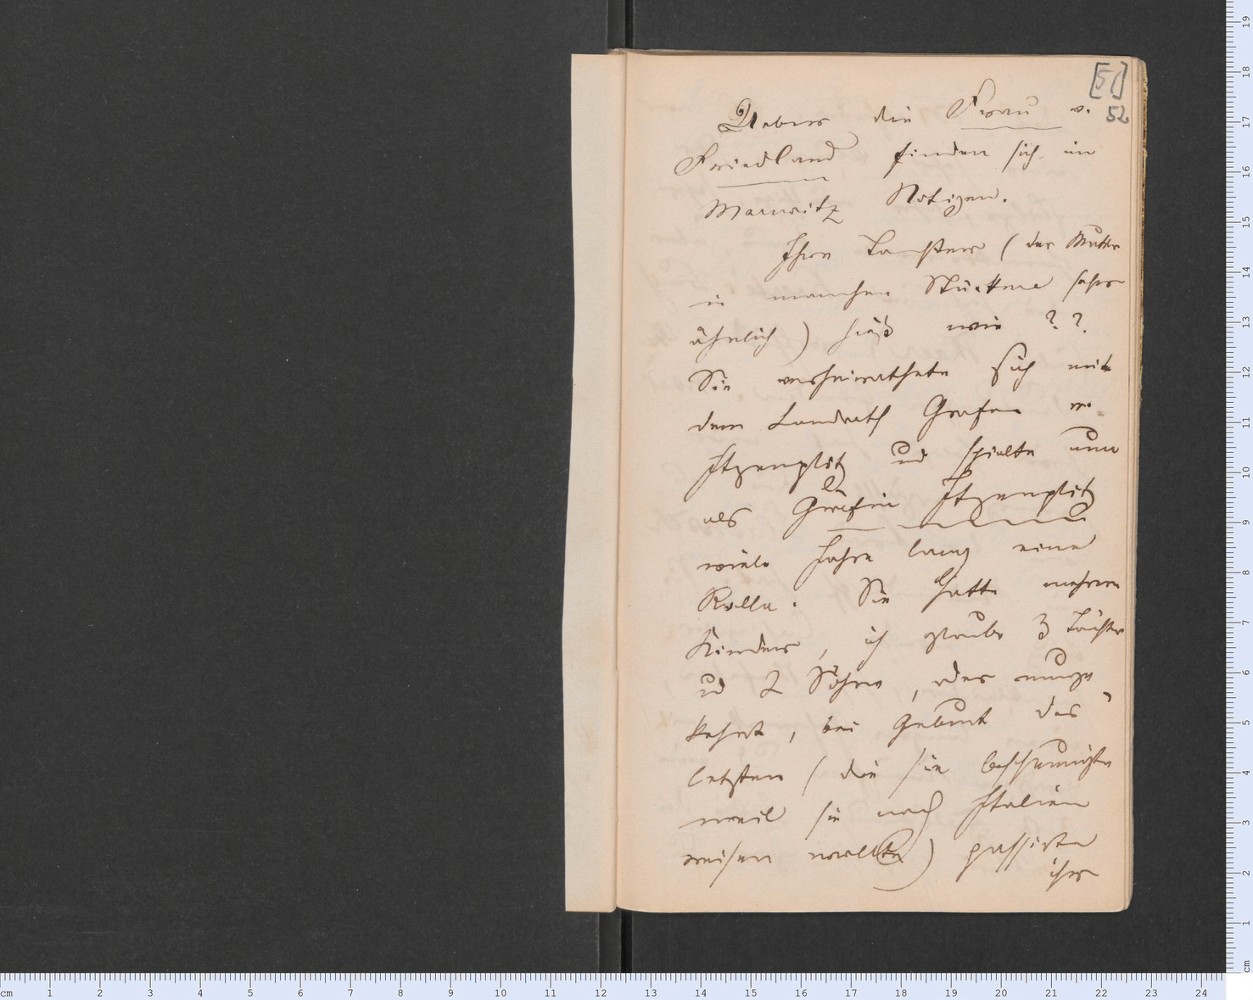 [51]
52
Ueber die Frau v.
Friedland finden sich im
Marwitz Notizen.
Ihre Tochter (der Mutter
in manchen Stücken sehr
ähnlich) hieß wie ??
Sie verheirathete sich mit
dem Landrath Grafen v.
Itzenplitz und spielte nun
als Gräfin Itzenplitz
viele Jahre lang eine
Rolle. Sie hatte mehrere
Kinder, ich glaube 3 Töchter
und 2 Söhne, oder umge
kehrt, bei Geburt des
letzten (die sie beschleunigte
weil sie nach Italien
reisen wollte) passirte
ihr